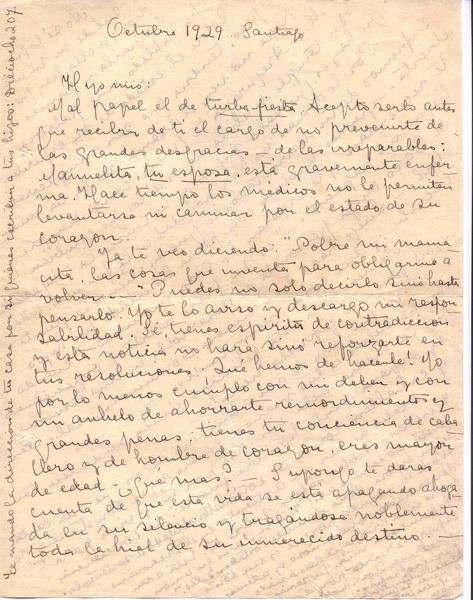 Octubre 1929. Santiago
Hijo mio:
Mal papel el de turba-fiesta. Acepto serlo antes
que recibir de ti el cargo de no prevenirte de
las grandes desgracias - de las irreparables:
Manuelita, tu esposa, está gravemente enfer
ma. Hace tiempo los médicos no le permiten
levantarse ni caminar por el estado de su
corazon.
Ya te veo diciendo: "Pobre mi mama
cita, las cosas que inventa para obligarme a
volver - " Puedes no solo decirlo sinó hasta
pensarlo. Yo te lo aviso y descargo mi respon-
sabilidad. Sé tienes espiritu de contradiccion
y esta noticia no hará sinó reforzarte en
tus resoluciones. Qué hemos de hacerle! Yo
por lo menos cumplo con mi deber y con
mi anhelo de ahorrarte remordimientos y
grandes penas. tienes tu conciencia de caba
llero y de hombre de corazon, eres mayor
de edad - ¿qué mas? - Supongo te darás
cuenta de que esta vida se está apagando ahoga
da en su silencio y tragándose noblemente
toda la hiel de su inmerecido destino. -
Te mando la direccion de tu casa por si quieres escribir a tus hijos: Dieciocho 207.